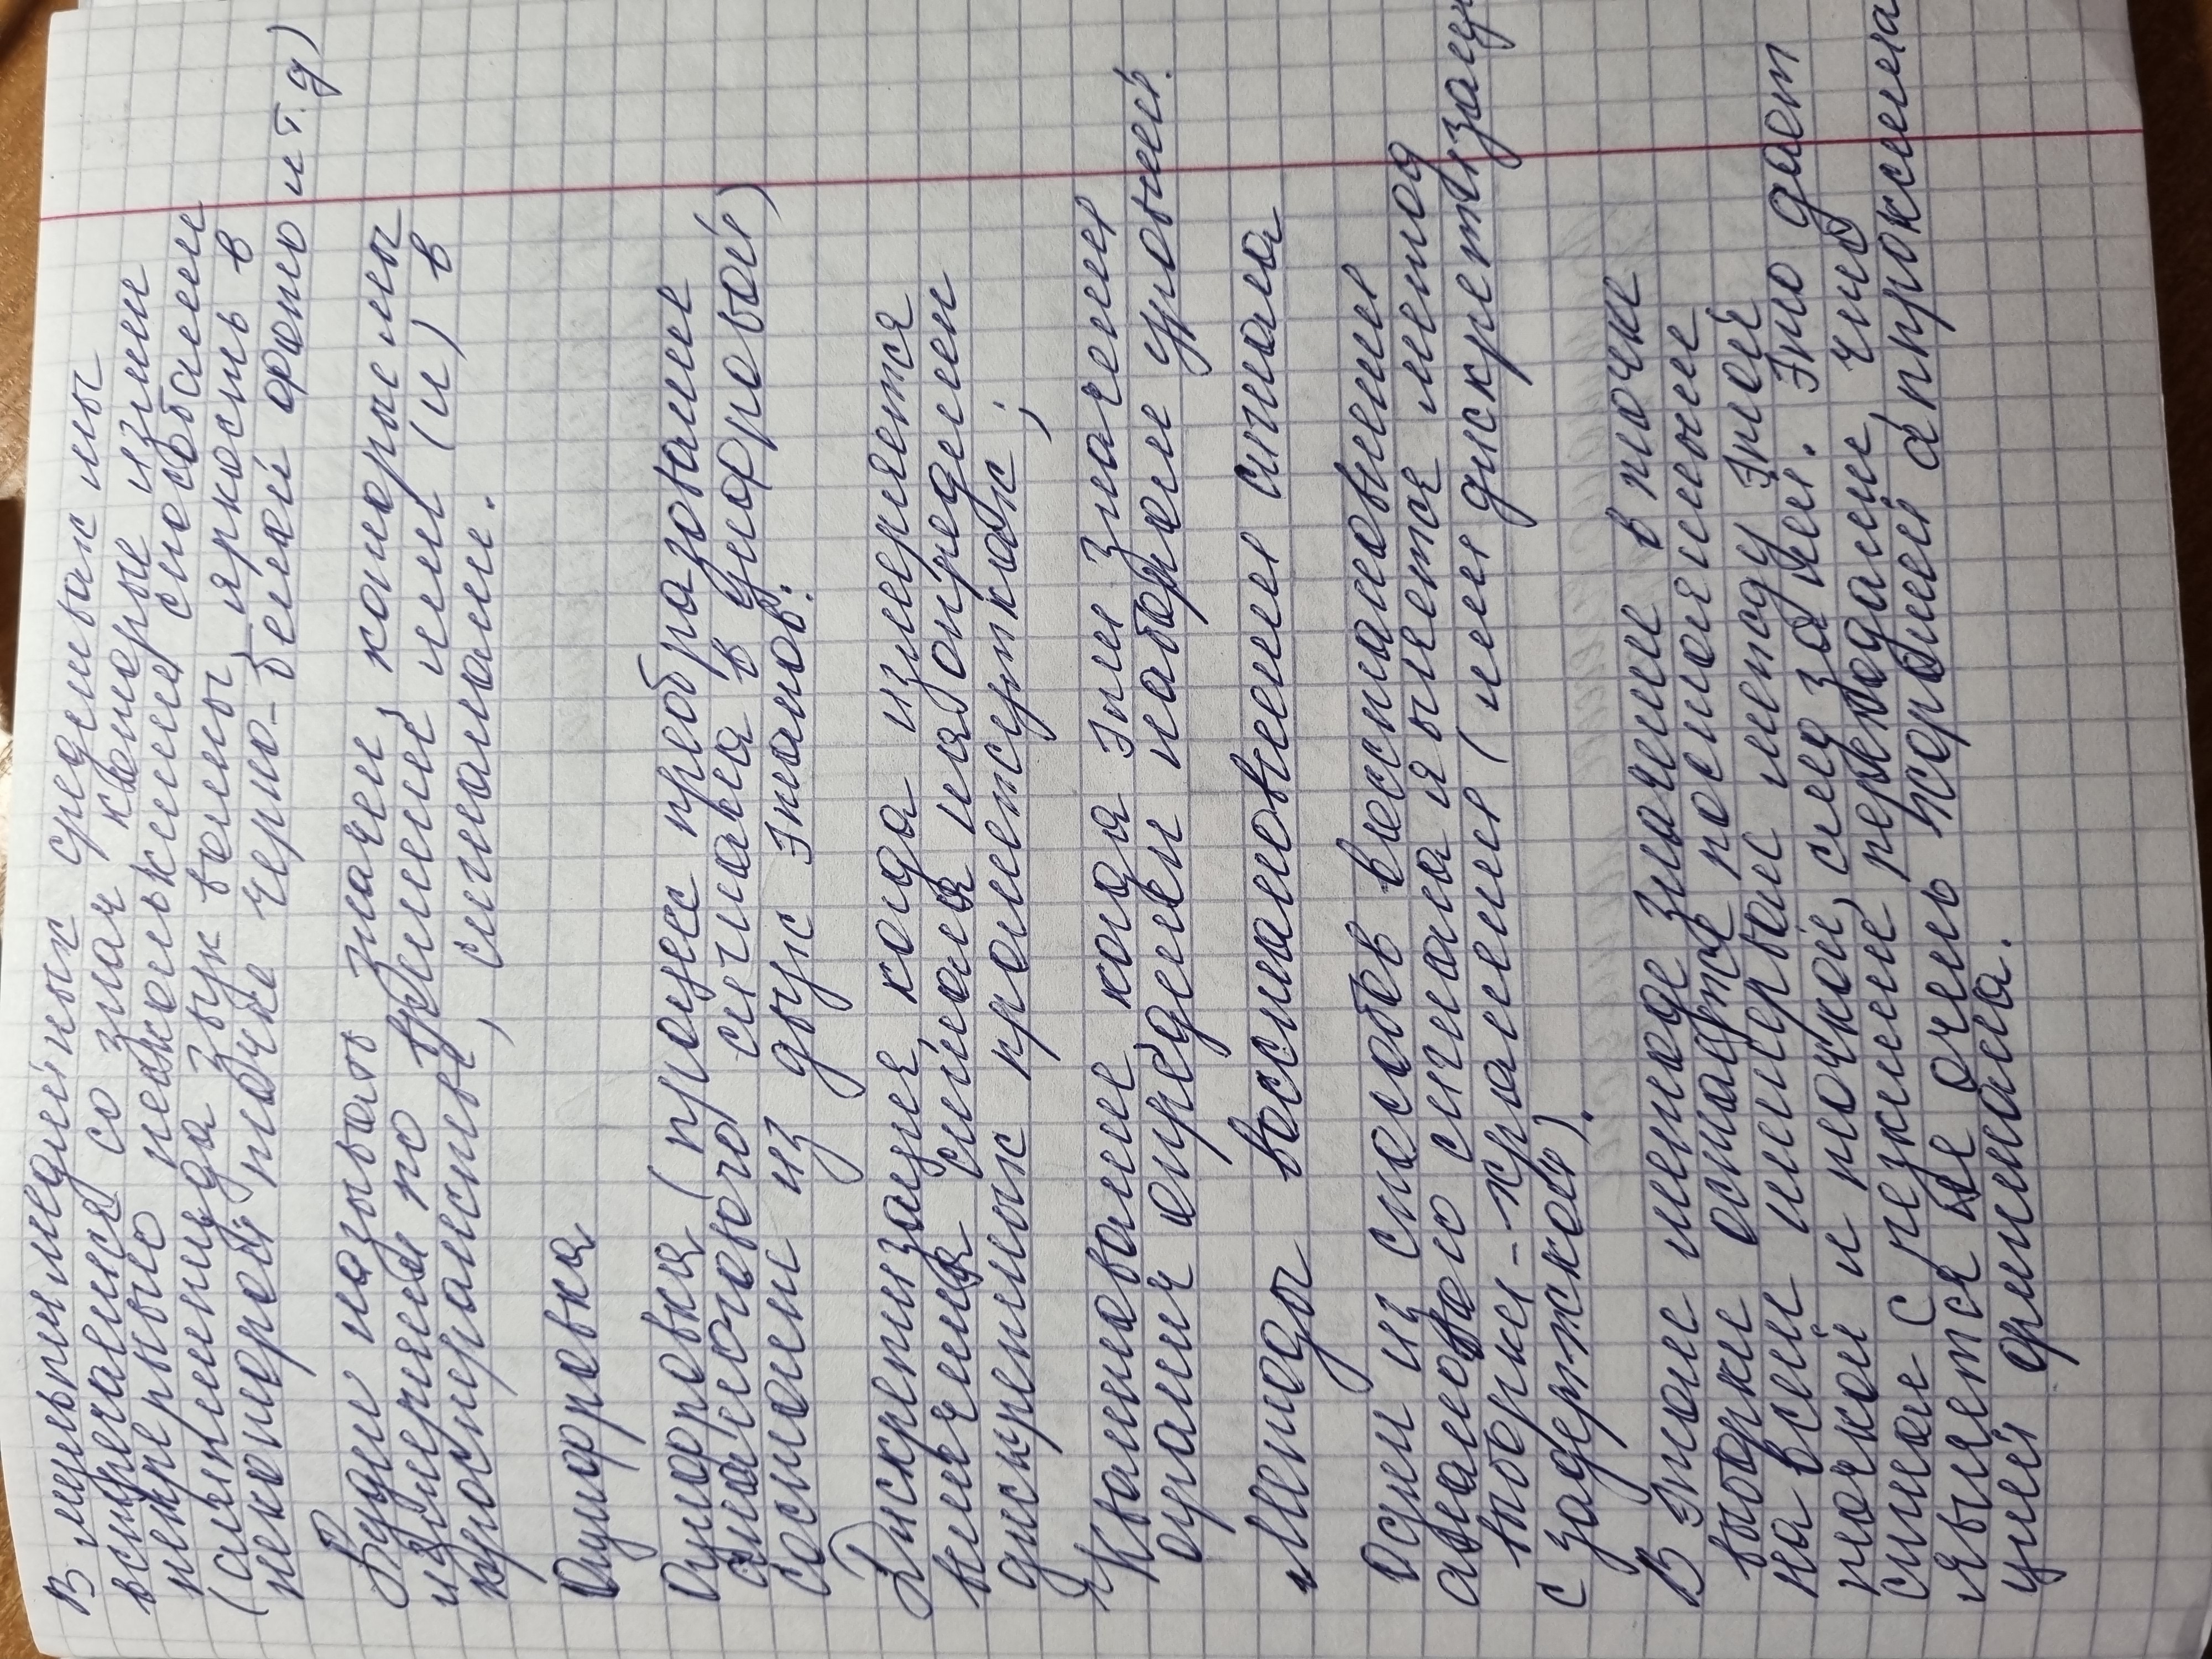 В мультимедийных средствах мы
встречаемся со знач, которые измен
непрерывно несколькими способами
(амплитуда звук волны, яркость в
некоторой точке черно-белой фото и т.д)
Будем называть значен, которые мы
измеряем по времени или (и) в
пространстве, сигналами.
Оцифровка
Оцифровка (процесс преобразование
аналогового сигнала в цифровой)
состоит из двух этапов:
Дискретизация, когда измеряется
величина сигнала на определен
дискретных промежутках;
Квантование, когда эти значения
огранич определен набором уровней.
Методы восстановления сигнала
Один из способов восстановления
сигнала является метод
выборки-хранения (или дискретизаци
с задержкой).
В этом методе значение в точке
выборки остаётся постоянным
на всем интервал между этой
точкой и точкой, след за ней. Это дает
сигнал с резкими переходами, что
является не очень хорошей аппроксима
цией оригинала.